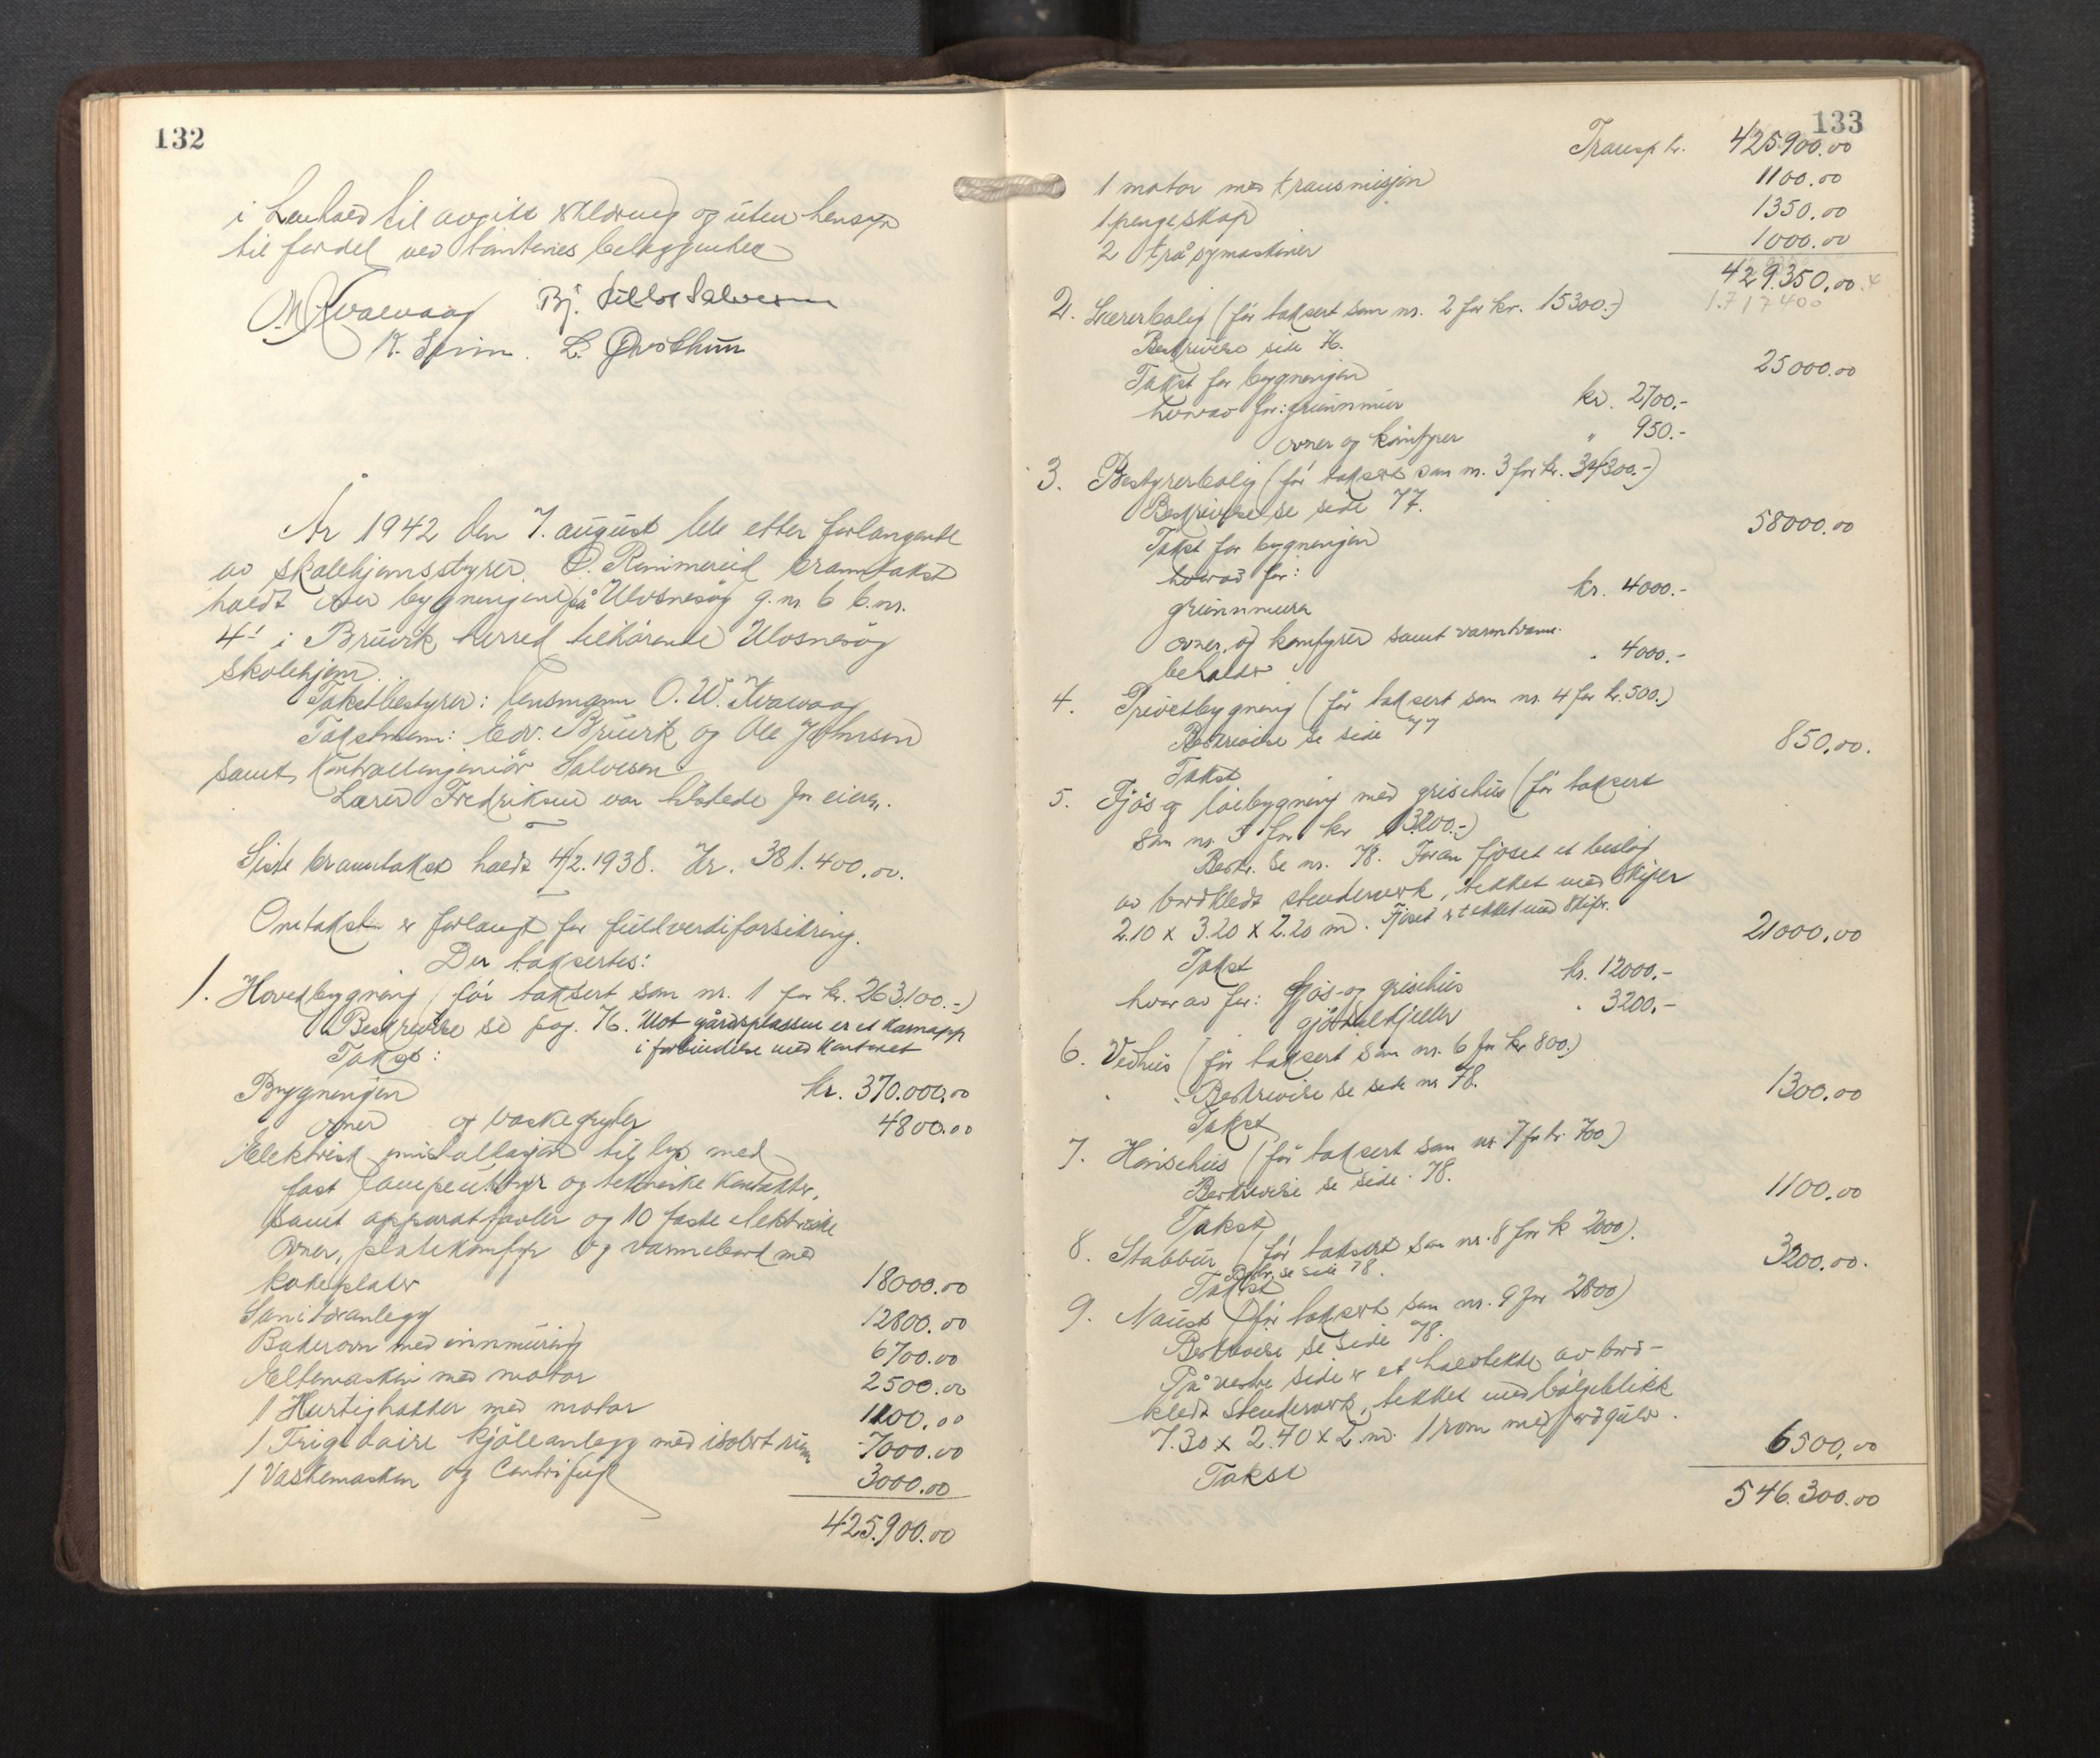 132
i henhold til avgitt erklæring og uten hensyn
til fordel ved tomtenes beliggenhet
O. W. Kvalvaag Bj. Salvesen
K. L.
År 1942 den 7. august ble etter forlangende
av skolehjemsstyrer O. Rimmereid branntakst
holdt over bygningene på Ulvsnesøy g.nr. 6 b.nr.
4¹ i Bruvik herred tilhørende Ulvsnesøy
skolehjem.
Takstbestyrer: lensmann O. W. Kvalvaag
Takstmenn: Edv. Bruvik og Ole Johnsen
samt kontrollingeniør Salvesen
Lærer Fredriksen var tilstede for eieren.
Siste branntakst holdt 4/2. 1938. Kr. 381.400.00.
Omtakst er forlangt for fullverdiforsikring.
Der taksertes:
1. Hovedbygning (før taksert som nr. 1 for kr. 263.100.-)
Beskrivelse se pag. 76. Mot gårdsplassen er et karnapp
i forbindelse med kontoret
Takst:
Bygningen kr. 370.000.00
ovner og vaskegryter 4800.00
Elektrisk installasjon til lys med
fast lampeutstyr og tekniske kontakter,
samt apparattavler og 10 faste elektriske
ovner, platekomfyr og varmebord med
kokeplater 18000.00
Sanitæranlegg 12800.00
Bakerovn med innmuring 6700.00
Eltemaskin med motor 2500.00
1 Hurtighakker med motor 1100.00
1 Frigidaire kjøleanlegg med isolert rum 7000.00
1 Vaskemaskin og Centrifuge 3000.00
425.900.00
133
Transp kr. 425.900.00
1 motor med transmisjon 1100.00
1 pengeskap 1350.00
2 trå symaskiner 1000.00
429.350.00
1.717400
2. Lærerbolig (før taksert som nr. 2 for kr. 15300.-)
Beskrivelse side 76.
Takst for bygningen 25000.00
hvorav for: grunnmur kr. 2700.-
ovner og komfyrer " 950.-
3. Bestyrerbolig (før taksert som nr. 3 for kr. 34300.-)
Beskrivelse se side 77.
Takst for bygningen 58000.00
hvorav for:
grunnmuren kr. 4000.-
ovner og komfyrer samt varmtvann-
beholder " 4000.-
4. Privetbygning (før taksert som nr. 4 for kr. 500.)
Beskrivelse se side 77
Takst 850.00.
5. Fjøs og løebygning med grisehus (før taksert
som nr. 5 for kr 13200.-)
Beskr. se nr. 78. Foran fjøset et bislag
av bordkledt stenderverk, tekket med skifer
2.10 x 3.20 x 2.20 m. Fjøset er tekket med skifer.
Takst 21000.00
hvorav for: fjøs og grisehus kr. 12000.-
gjødselkjeller " 3200.-
6. Vedhus (før taksert som nr. 6 for kr 800.)
Beskrivelse se side nr 78.
Takst 1300.00
7. Hønsehus (før taksert som nr. 7 for kr. 700)
Beskrivelse se side 78.
Takst 1100.00
8. Stabbur (før taksert som nr. 8 for k 2000).
Beskr. se side 78.
Takst 3200.00.
9. Naust (før taksert som nr. 9 for 2800)
Beskrivelse se side 78.
På vestre side er et halvtekke av bord-
kledt stenderverk, tekket med bølgeblikk
7.30 x 2.40 x 2 m. 1 rom med jordgulv.
Takst 6500.00
546.300.00